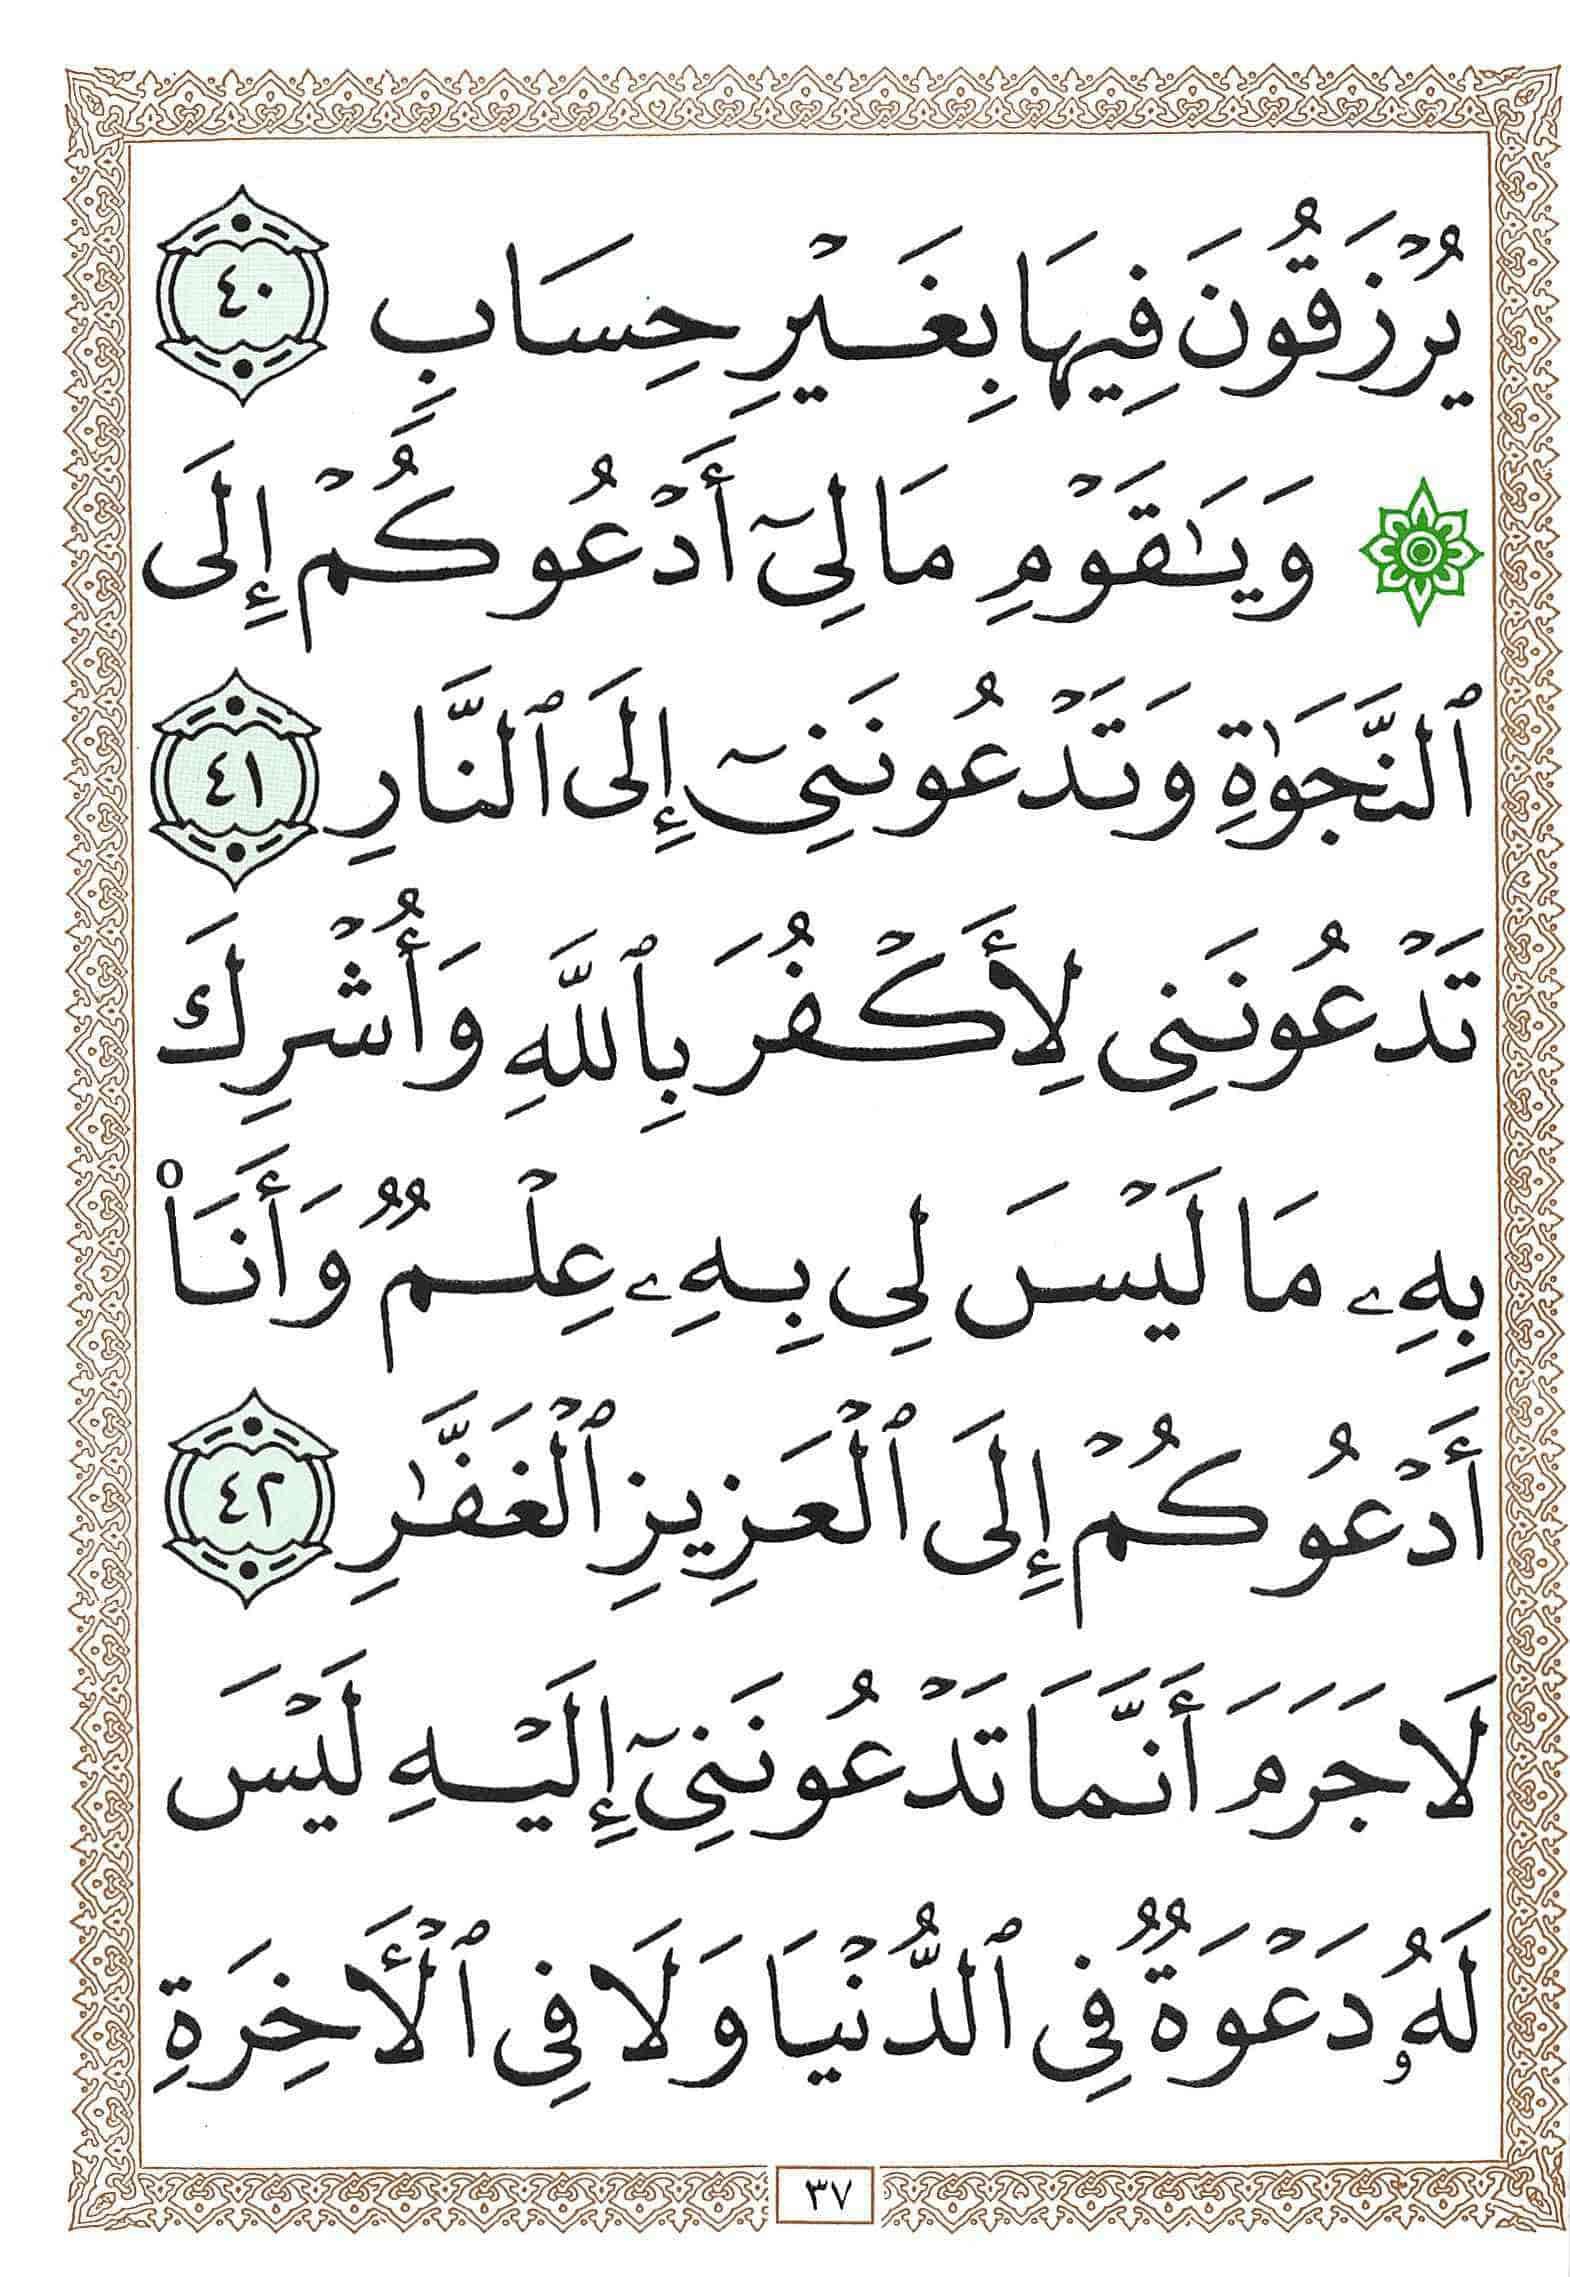 يُرْزَقُونَ فِيهَا بِغَيْرِ حِسَابٍ ٤٠
۞ وَيَٰقَوْمِ مَا لِىٓ أَدْعُوكُمْ إِلَى
ٱلنَّجَوٰةِ وَتَدْعُونَنِىٓ إِلَى ٱلنَّارِ ٤١
تَدْعُونَنِى لِأَكْفُرَ بِٱللَّهِ وَأُشْرِكَ
بِهِۦ مَا لَيْسَ لِى بِهِۦ عِلْمٌ وَأَنَا۠
أَدْعُوكُمْ إِلَى ٱلْعَزِيزِ ٱلْغَفَّٰرِ ٤٢
لَا جَرَمَ أَنَّمَا تَدْعُونَنِىٓ إِلَيْهِ لَيْسَ
لَهُۥ دَعْوَةٌ فِى ٱلدُّنْيَا وَلَا فِى ٱلْأَخِرَةِ
٣٧